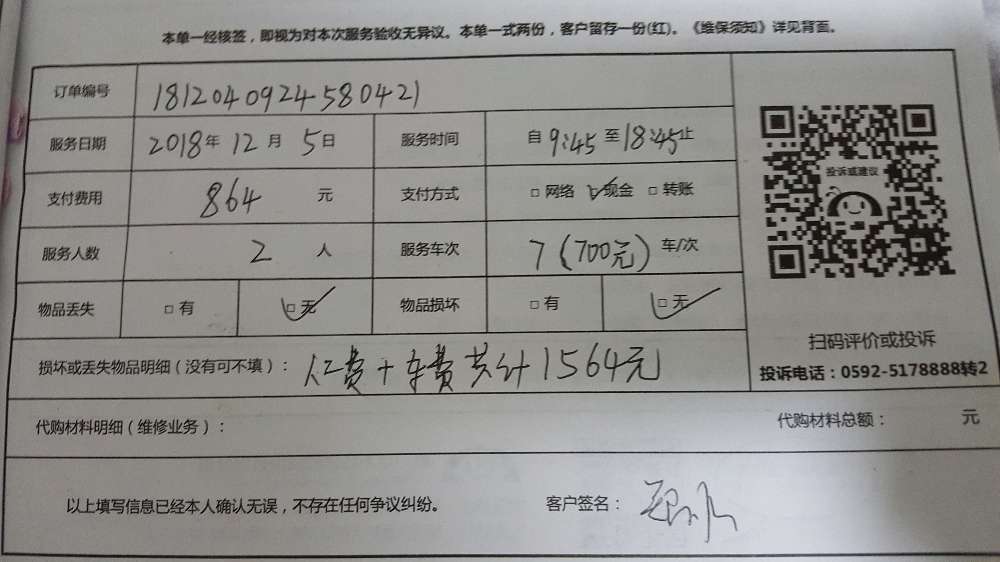 本单一经核签，即视为对本次服务验收无异议。本单一式两份，客户留存一份(红)。《维保须知》详见背面。
订单编号 1812040924580421
服务日期 2018年12月5日 服务时间 自9:45至18:45止
支付费用 864 元 支付方式 □网络 ☑现金 □转账
服务人数 2 人 服务车次 7(700元) 车/次
物品丢失 □有 ☑无 物品损坏 □有 ☑无
投诉或建议
扫码评价或投诉
投诉电话：0592-5178888转2
损坏或丢失物品明细（没有可不填）： 人工费+车费共计1564元
代购材料明细（维修业务）： 代购材料总额： 元
以上填写信息已经本人确认无误，不存在任何争议纠纷。 客户签名：